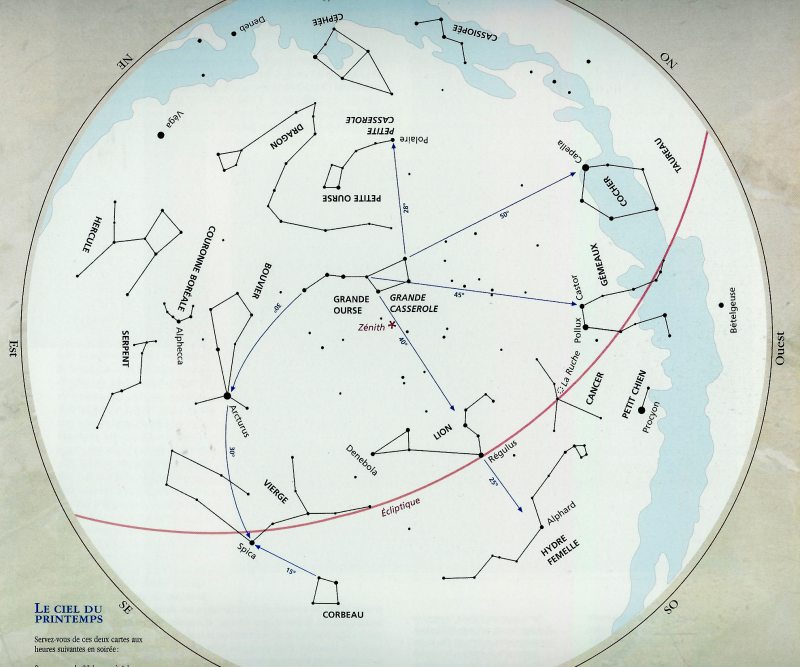 Deneb
CÉPHÉE
CASSIOPÉE
NE
NO
Véga
DRAGON
PETITE
CASSEROLE
Polaire
Capella
TAUREAU
PETITE OURSE
COCHER
28°
50°
HERCULE
COURONNE BORÉALE
BOUVIER
GÉMEAUX
Castor
GRANDE
OURSE
GRANDE
CASSEROLE
45°
30°
Zénith
40°
Bételgeuse
Est
Ouest
SERPENT
Alphecca
Pollux
La Ruche
CANCER
PETIT CHIEN
Procyon
Arcturus
LION
30°
Denebola
Régulus
VIERGE
25°
Écliptique
Alphard
Spica
HYDRE
FEMELLE
15°
CORBEAU
SE
SO
LE CIEL DU
PRINTEMPS
Servez-vous de ces deux cartes aux
heures suivantes en soirée :